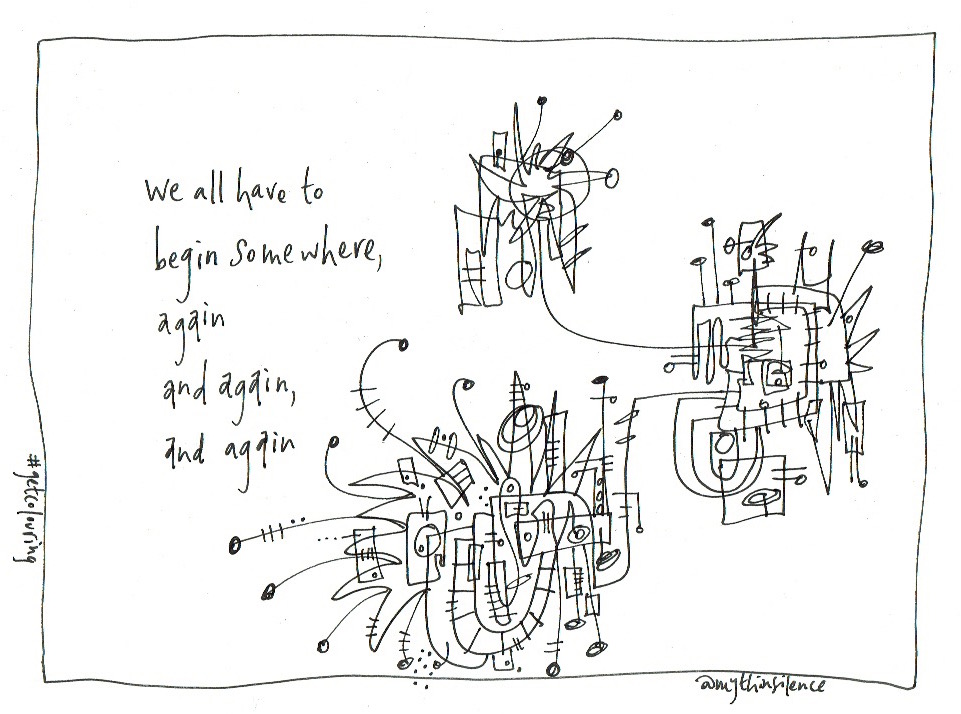 we all have to
begin somewhere,
again
and again,
and again
#getcolouring
@mythinsilence